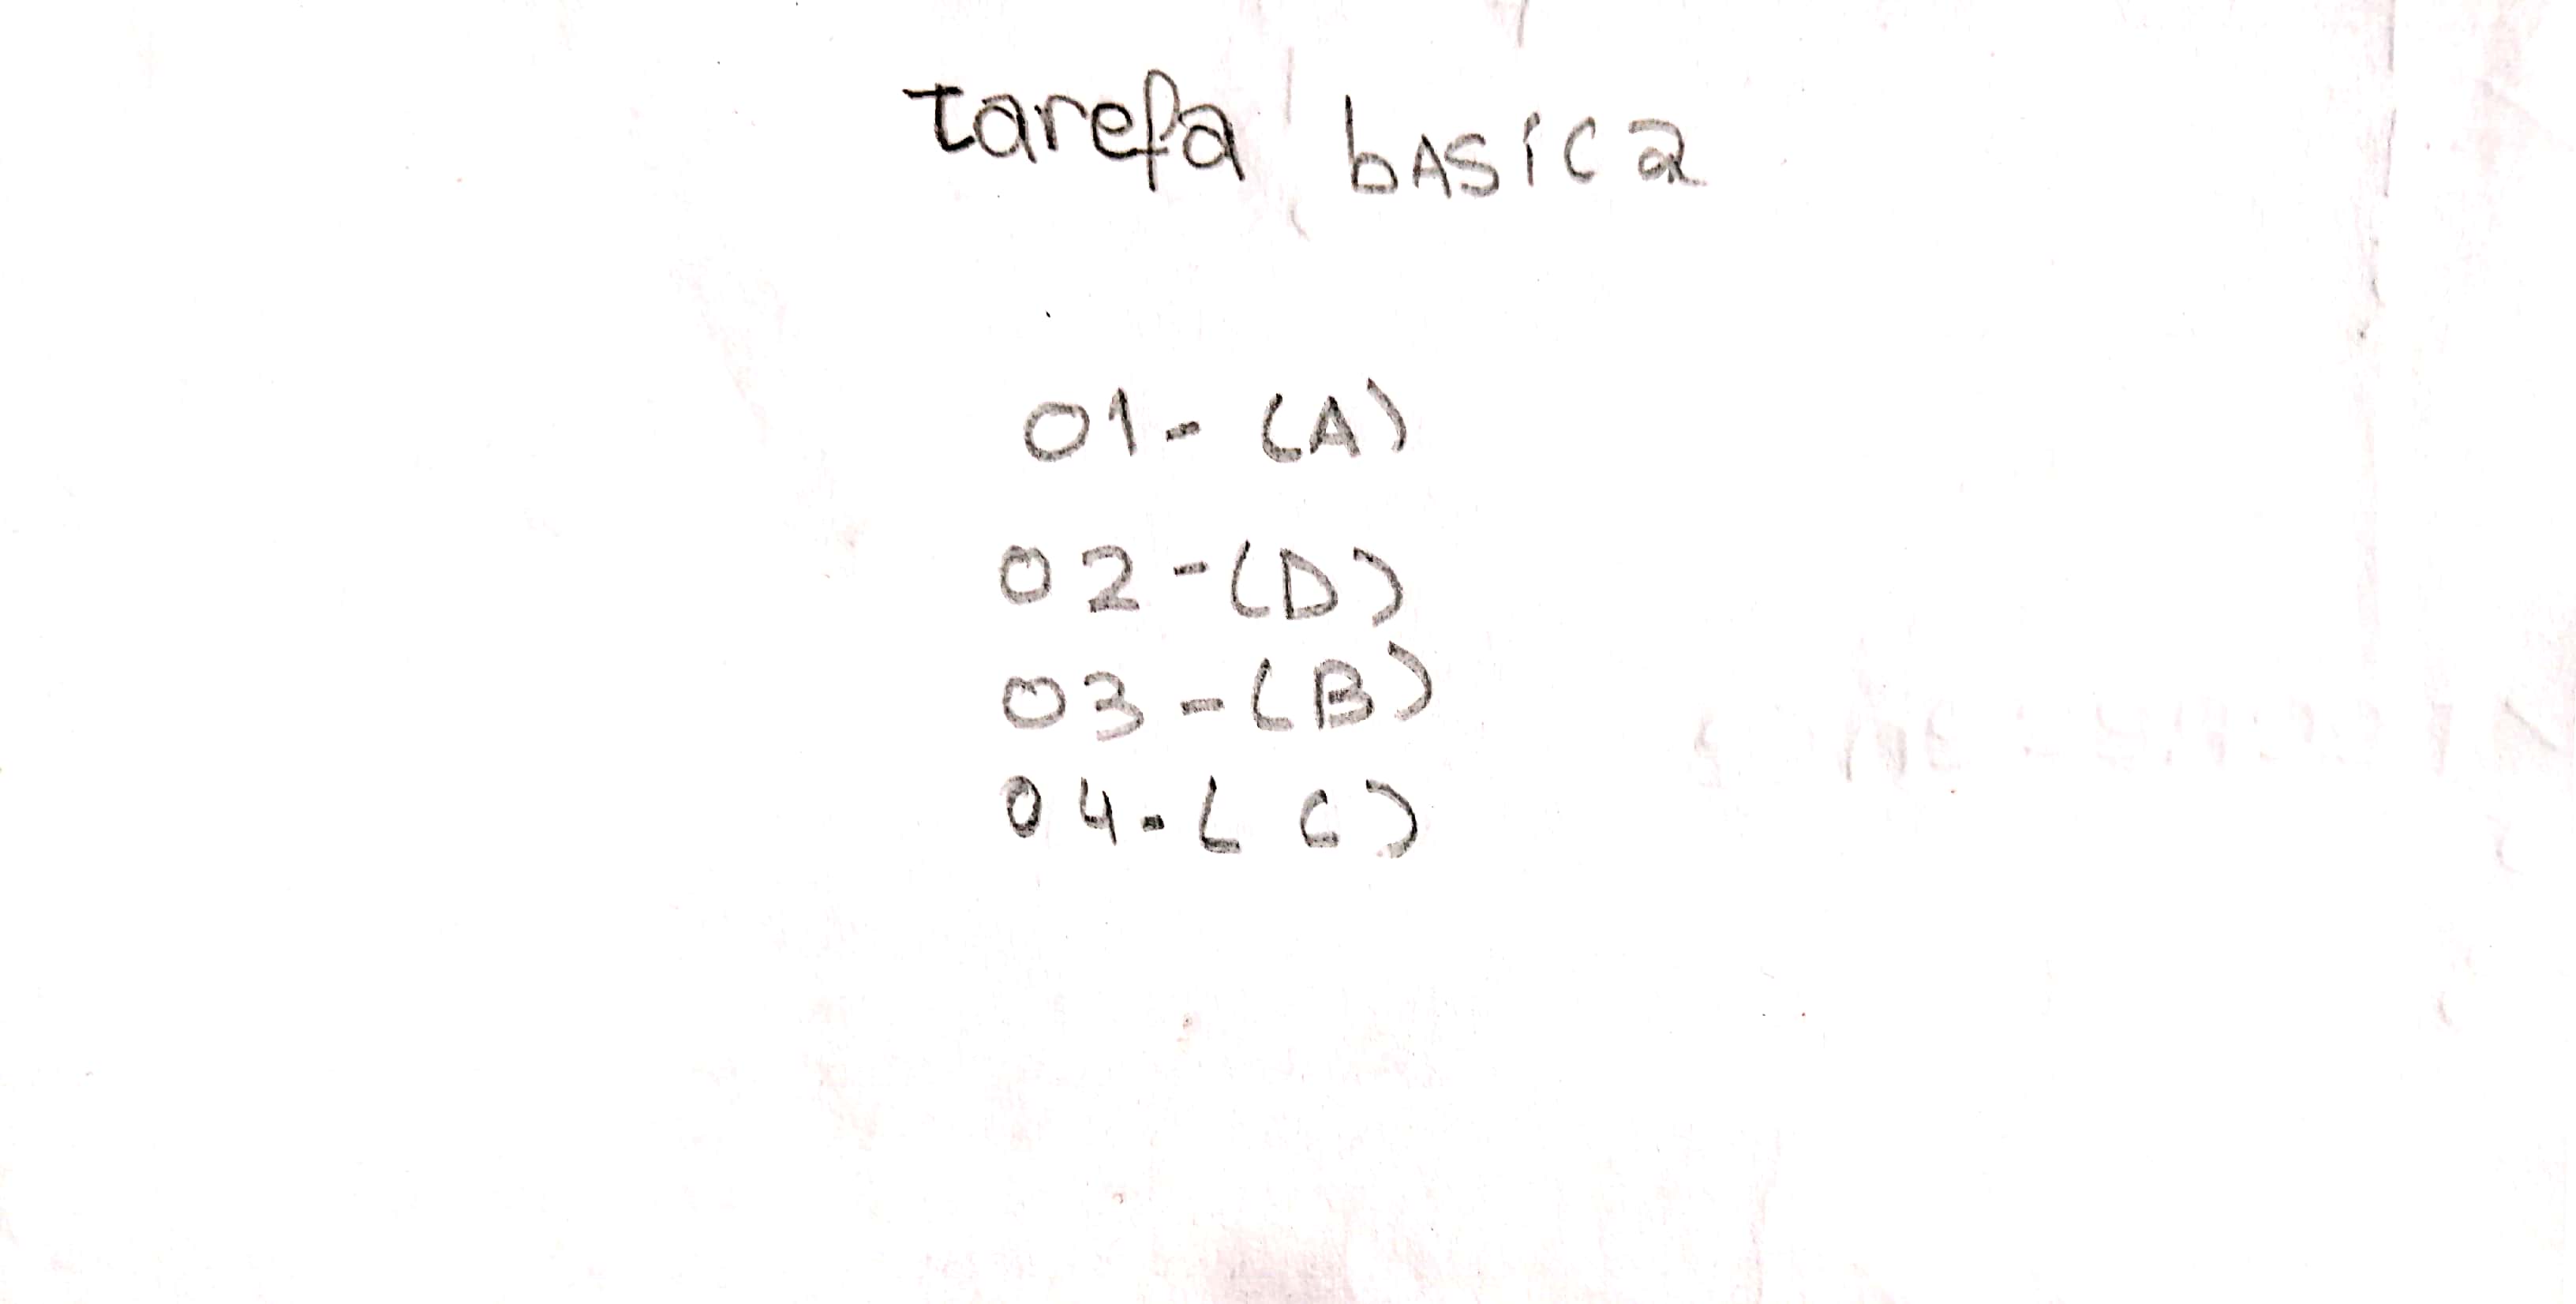 tarefa bASica
01- (A)
02-(D)
03-(B)
04-( C)